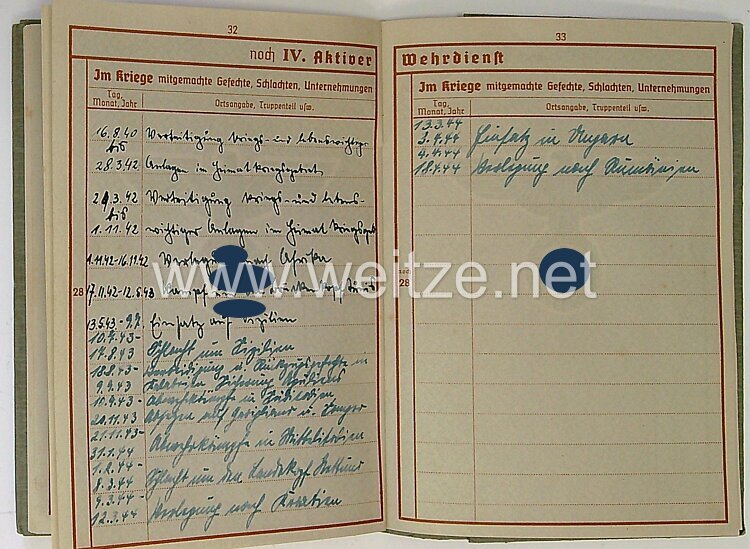 32
noch IV. Aktiver
Im Kriege mitgemachte Gefechte, Schlachten, Unternehmungen
Tag, Monat, Jahr
Ortsangabe, Truppenteil usw.
16.8.40 Verteidigung kriegs- und lebenswichtiger
bis
28.3.42 Anlagen im Heimatkriegsgebiet
29.3.42 Verteidigung kriegs- und lebens-
bis
1.11.42 wichtiger Anlagen im Heimatkriegsgebiet
1.11.42-16.11.42 Verlegung nach Afrika
28
17.11.42-12.5.43 Kampf um den Brückenkopf Tunis
13.5.43-9.7. Einsatz auf Sizilien
10.7.43-
17.8.43 Schlacht um Sizilien
18.8.43- Verteidigung u. Rückzugsgefechte in
9.9.43 Kalabrien Sicherung Apuliens
10.9.43- Abwehrkämpfe in Süditalien
20.11.43 Absetzen auf Garigliano u. Sangro
21.11.43-
31.1.44 Abwehrkämpfe in Mittelitalien
1.2.44-
8.3.44 Schlacht um den Landekopf Nettuno
9.3.44-
12.3.44 Verlegung nach Kroatien
33
Wehrdienst
Im Kriege mitgemachte Gefechte, Schlachten, Unternehmungen
Tag, Monat, Jahr
Ortsangabe, Truppenteil usw.
13.3.44
3.4.44 Einsatz in Ungarn
4.4.44
18.4.44 Verlegung nach Rumänien
noch
28
www.weitze.net